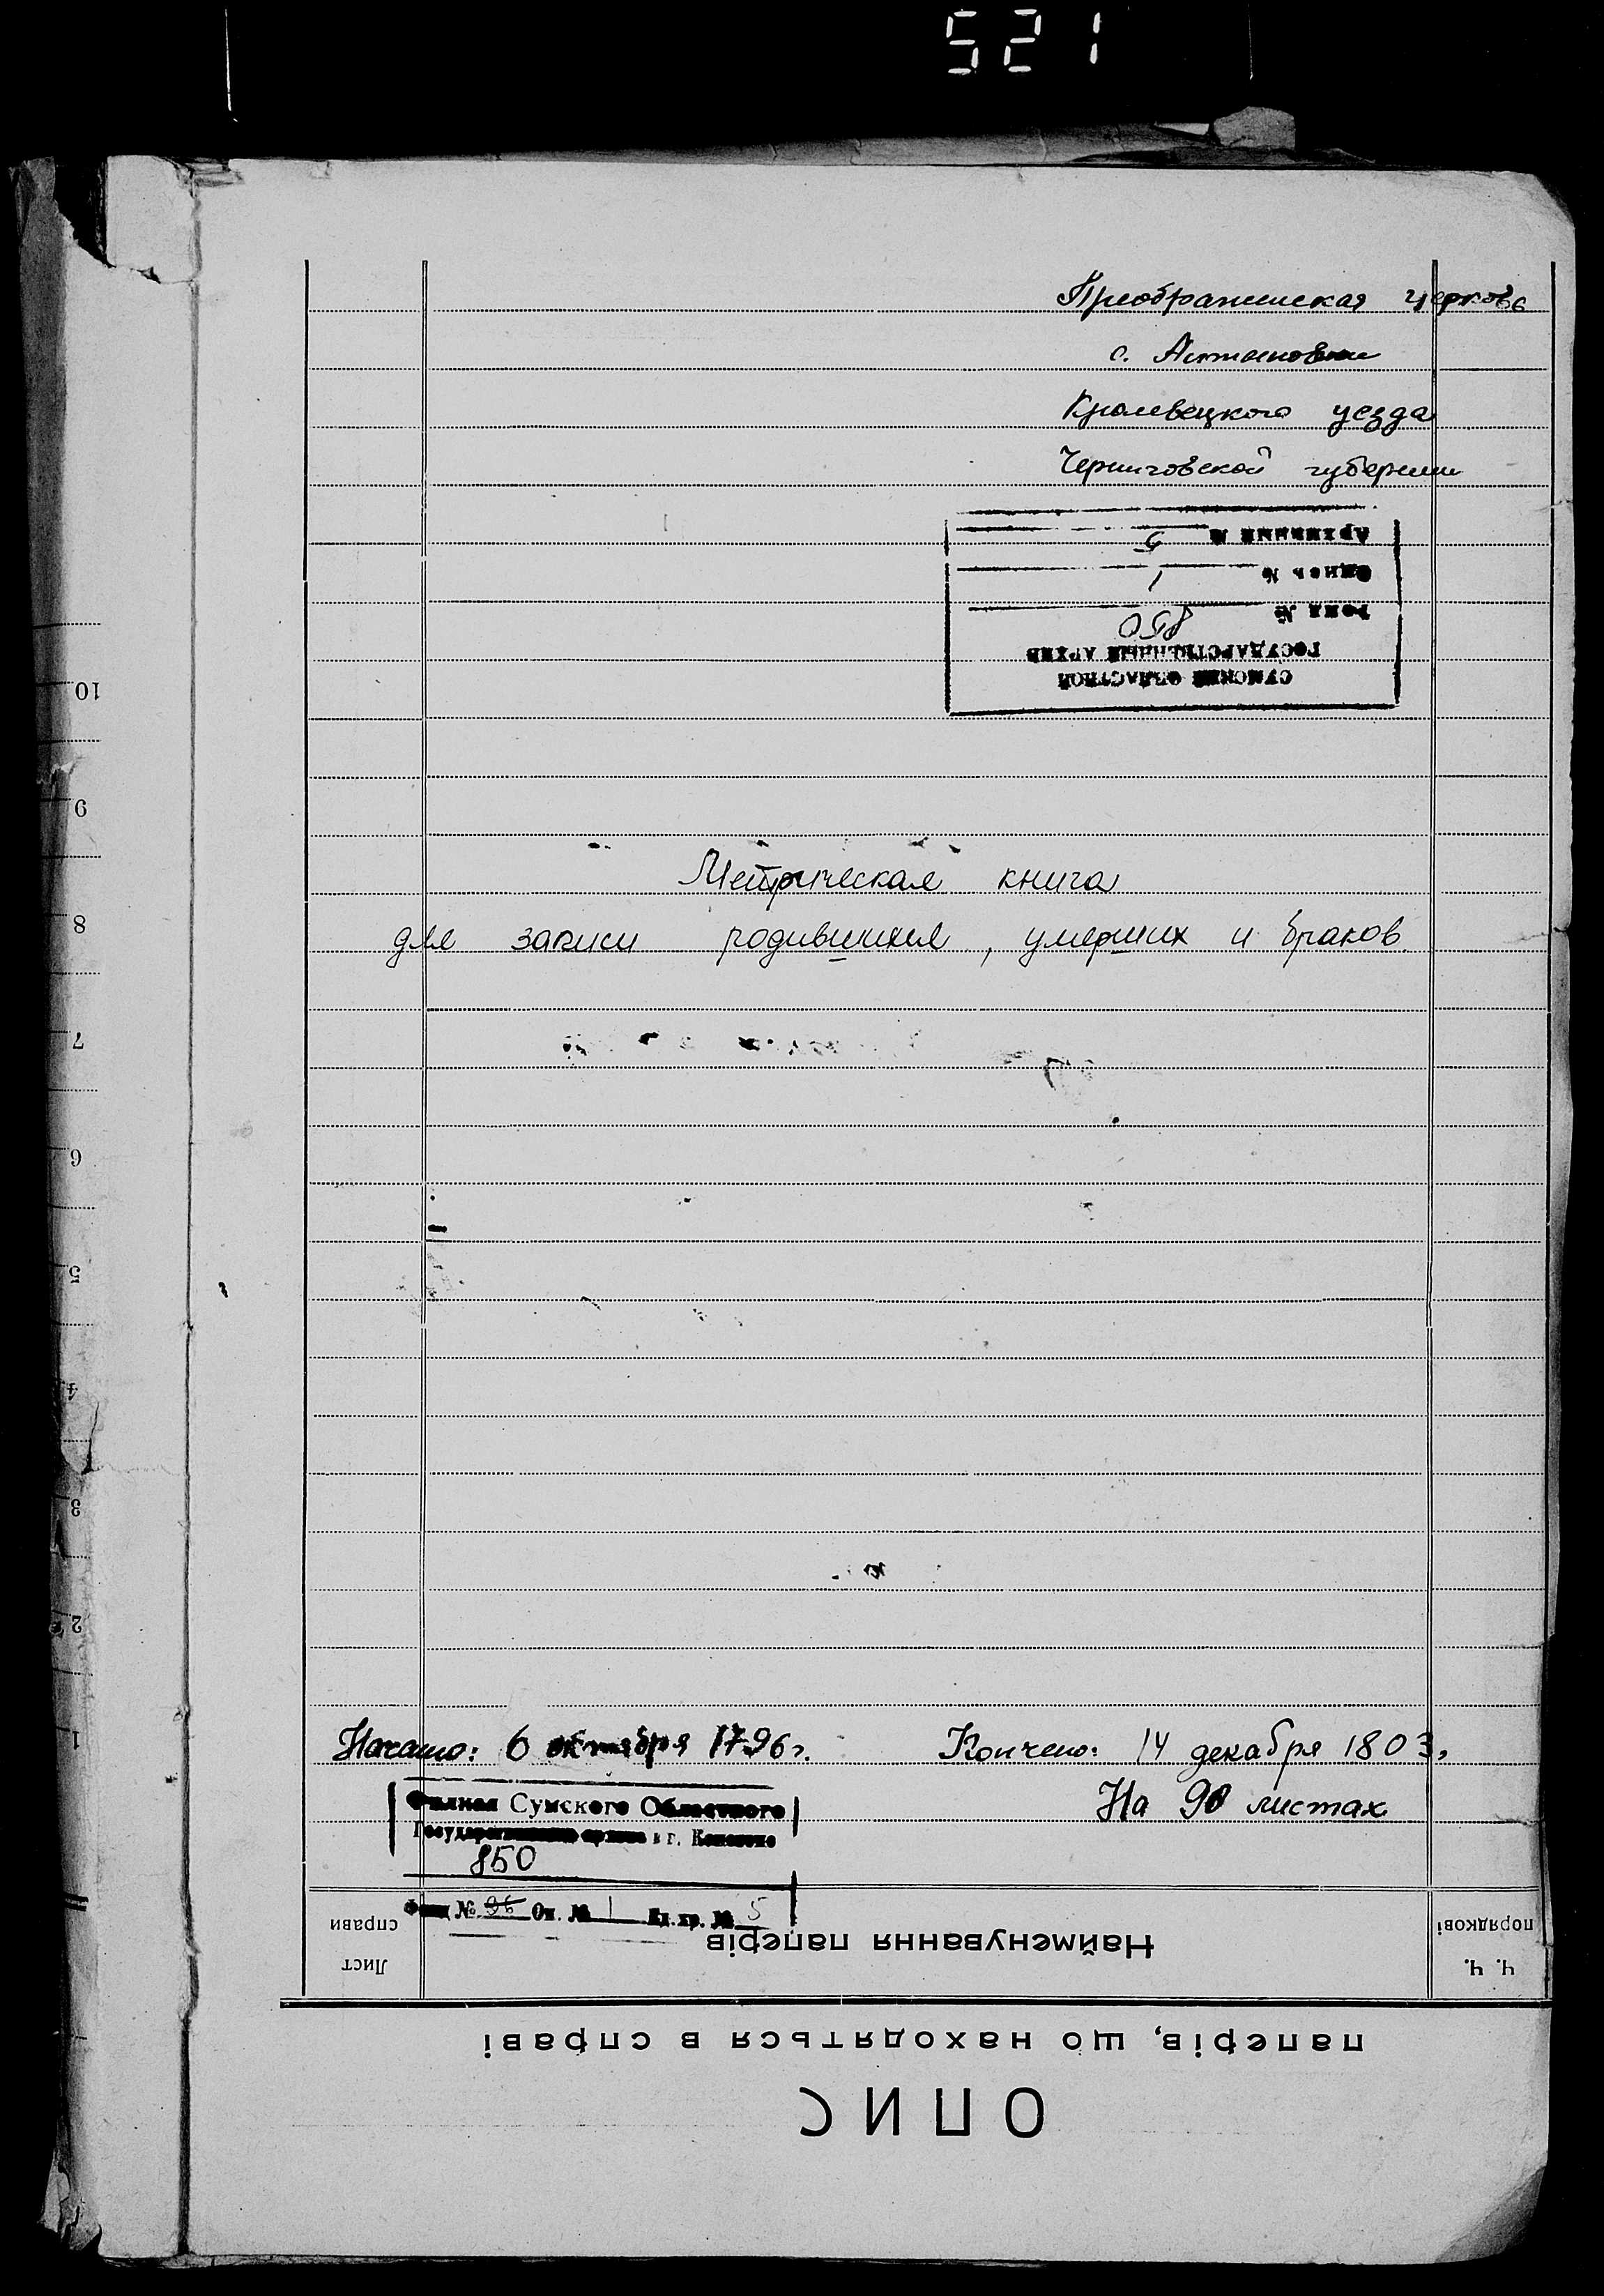 521
Преображенская церковь
с.
Кролевецкого уезда
Черниговской губернии
Архивный № 5
Опись № 1
Фонд № 850
ГОСУДАРСТВЕННЫЙ АРХИВ
СУМСКИЙ ОБЛАСТНОЙ
Метрическая книга
для записи родившихся, умерших и браков
10
9
8
7
6
5
4
3
2
1
Начато: 6 октября 1796 г. Кончено: 14 декабря 1803.
На 90 листах
Филиал Сумского Областного
Государственного архива в г. Конотопе
850
Фонд № 96 Оп. № 1 Ед. хр. № 5
Лист справи
Найменування паперів
Ч. Ч. порядкові
паперів, що находяться в справі
ОПИС